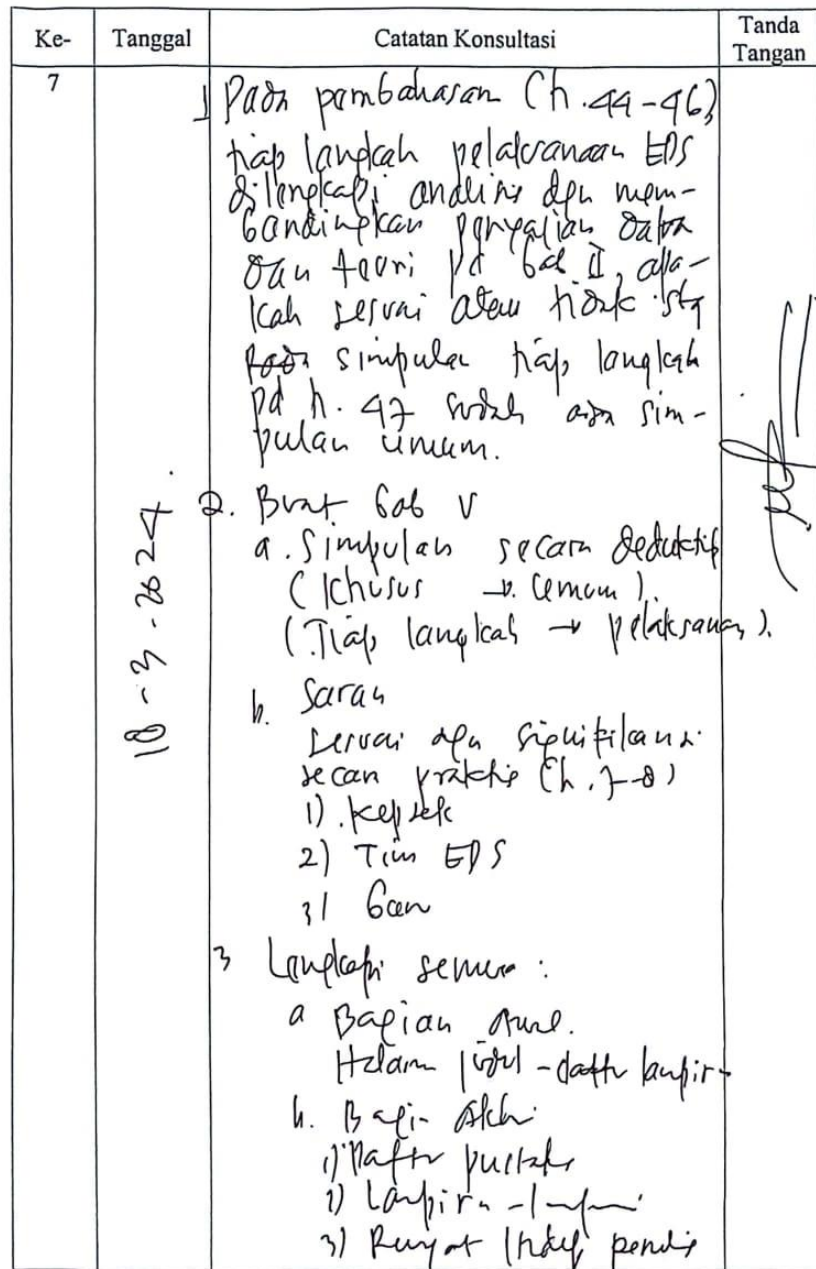 Ke- Tanggal Catatan Konsultasi Tanda Tangan
7
18-3-2024.
1 Pada pembahasan (h. 44-46)
tiap langkah pelaksanaan EDS
dilengkapi analisis dgn mem-
bandingkan penyajian data
dan teori pd bab II, apa-
kah sesuai atau tidak. stg
simpulan tiap langkah
pd h. 47 sudah ada sim-
pulan umum.
2. Buat bab V
a. Simpulan secara deduktif
(Khusus → Umum).
(Tiap langkah → pelaksanaan).
b. Saran
sesuai dgn signifikansi
secara praktis (h. 7-8)
1). Kepsek
2) Tim EDS
3) Guru
3 Lengkapi semua :
a Bagian Awal.
Halaman judul - daftar lampiran
b. Bagian Akhir
1) Daftar pustaka
2) Lampiran -
3) Riwayat hidup penulis